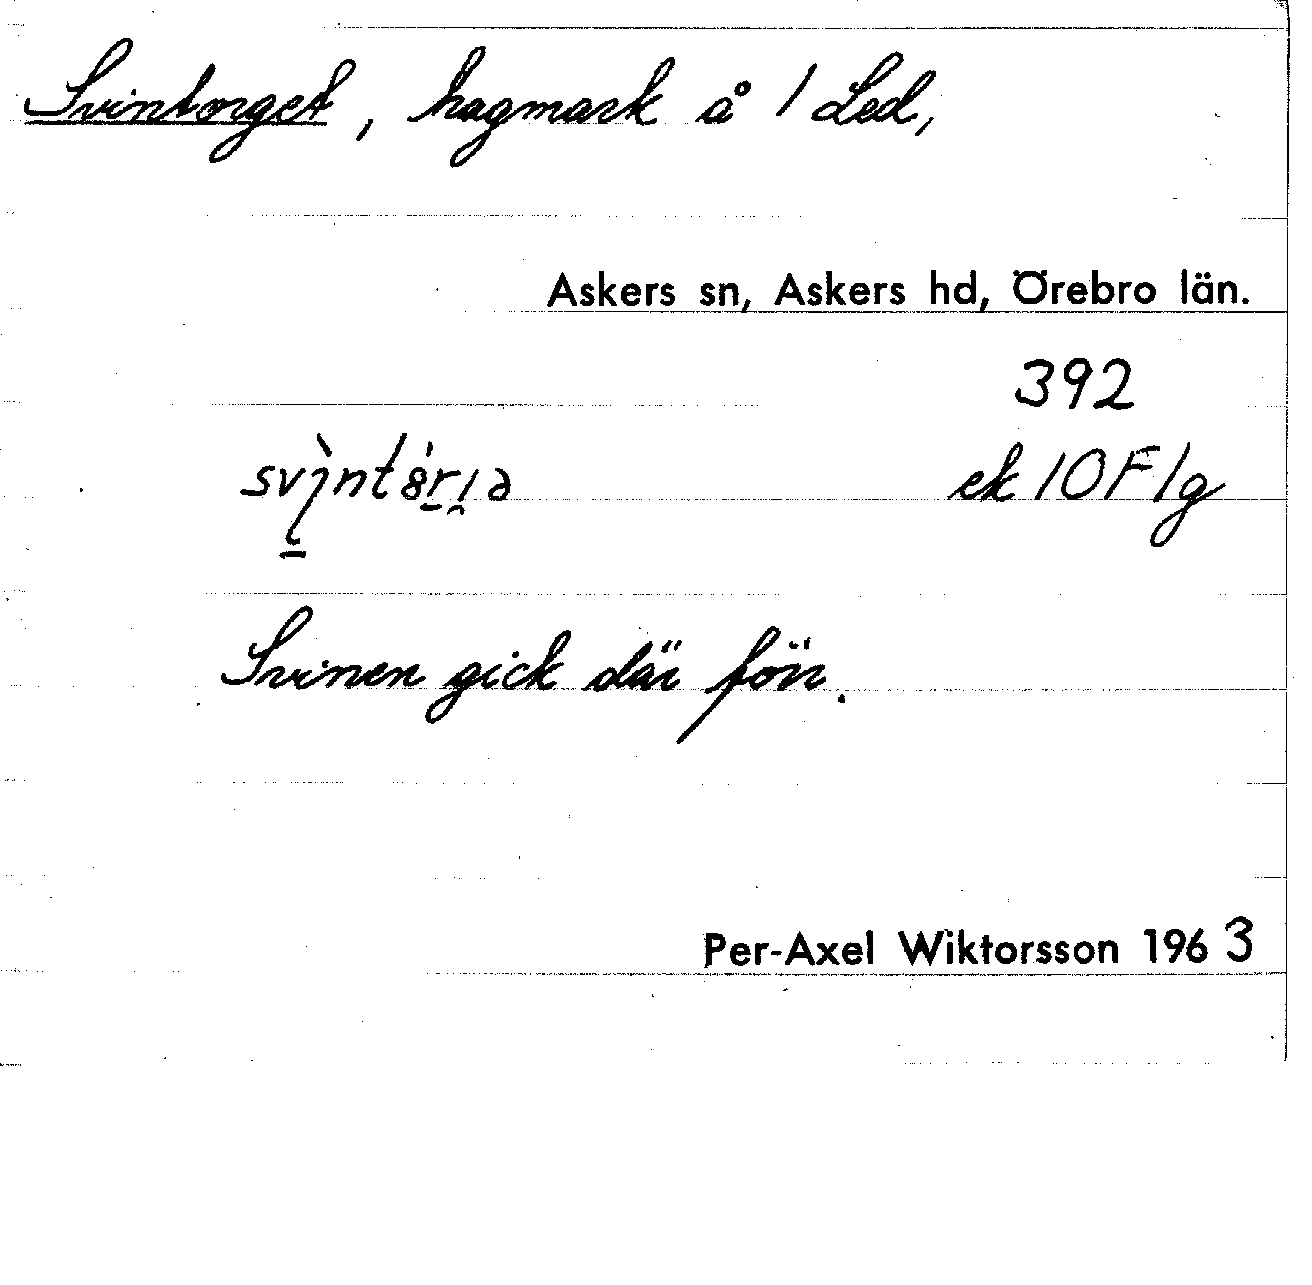 Svintorget, hagmark å 1 Led,
Askers sn, Askers hd, Örebro län.
392
ek 10F1g
Svinen gick där förr.
Per-Axel Wiktorsson 1963